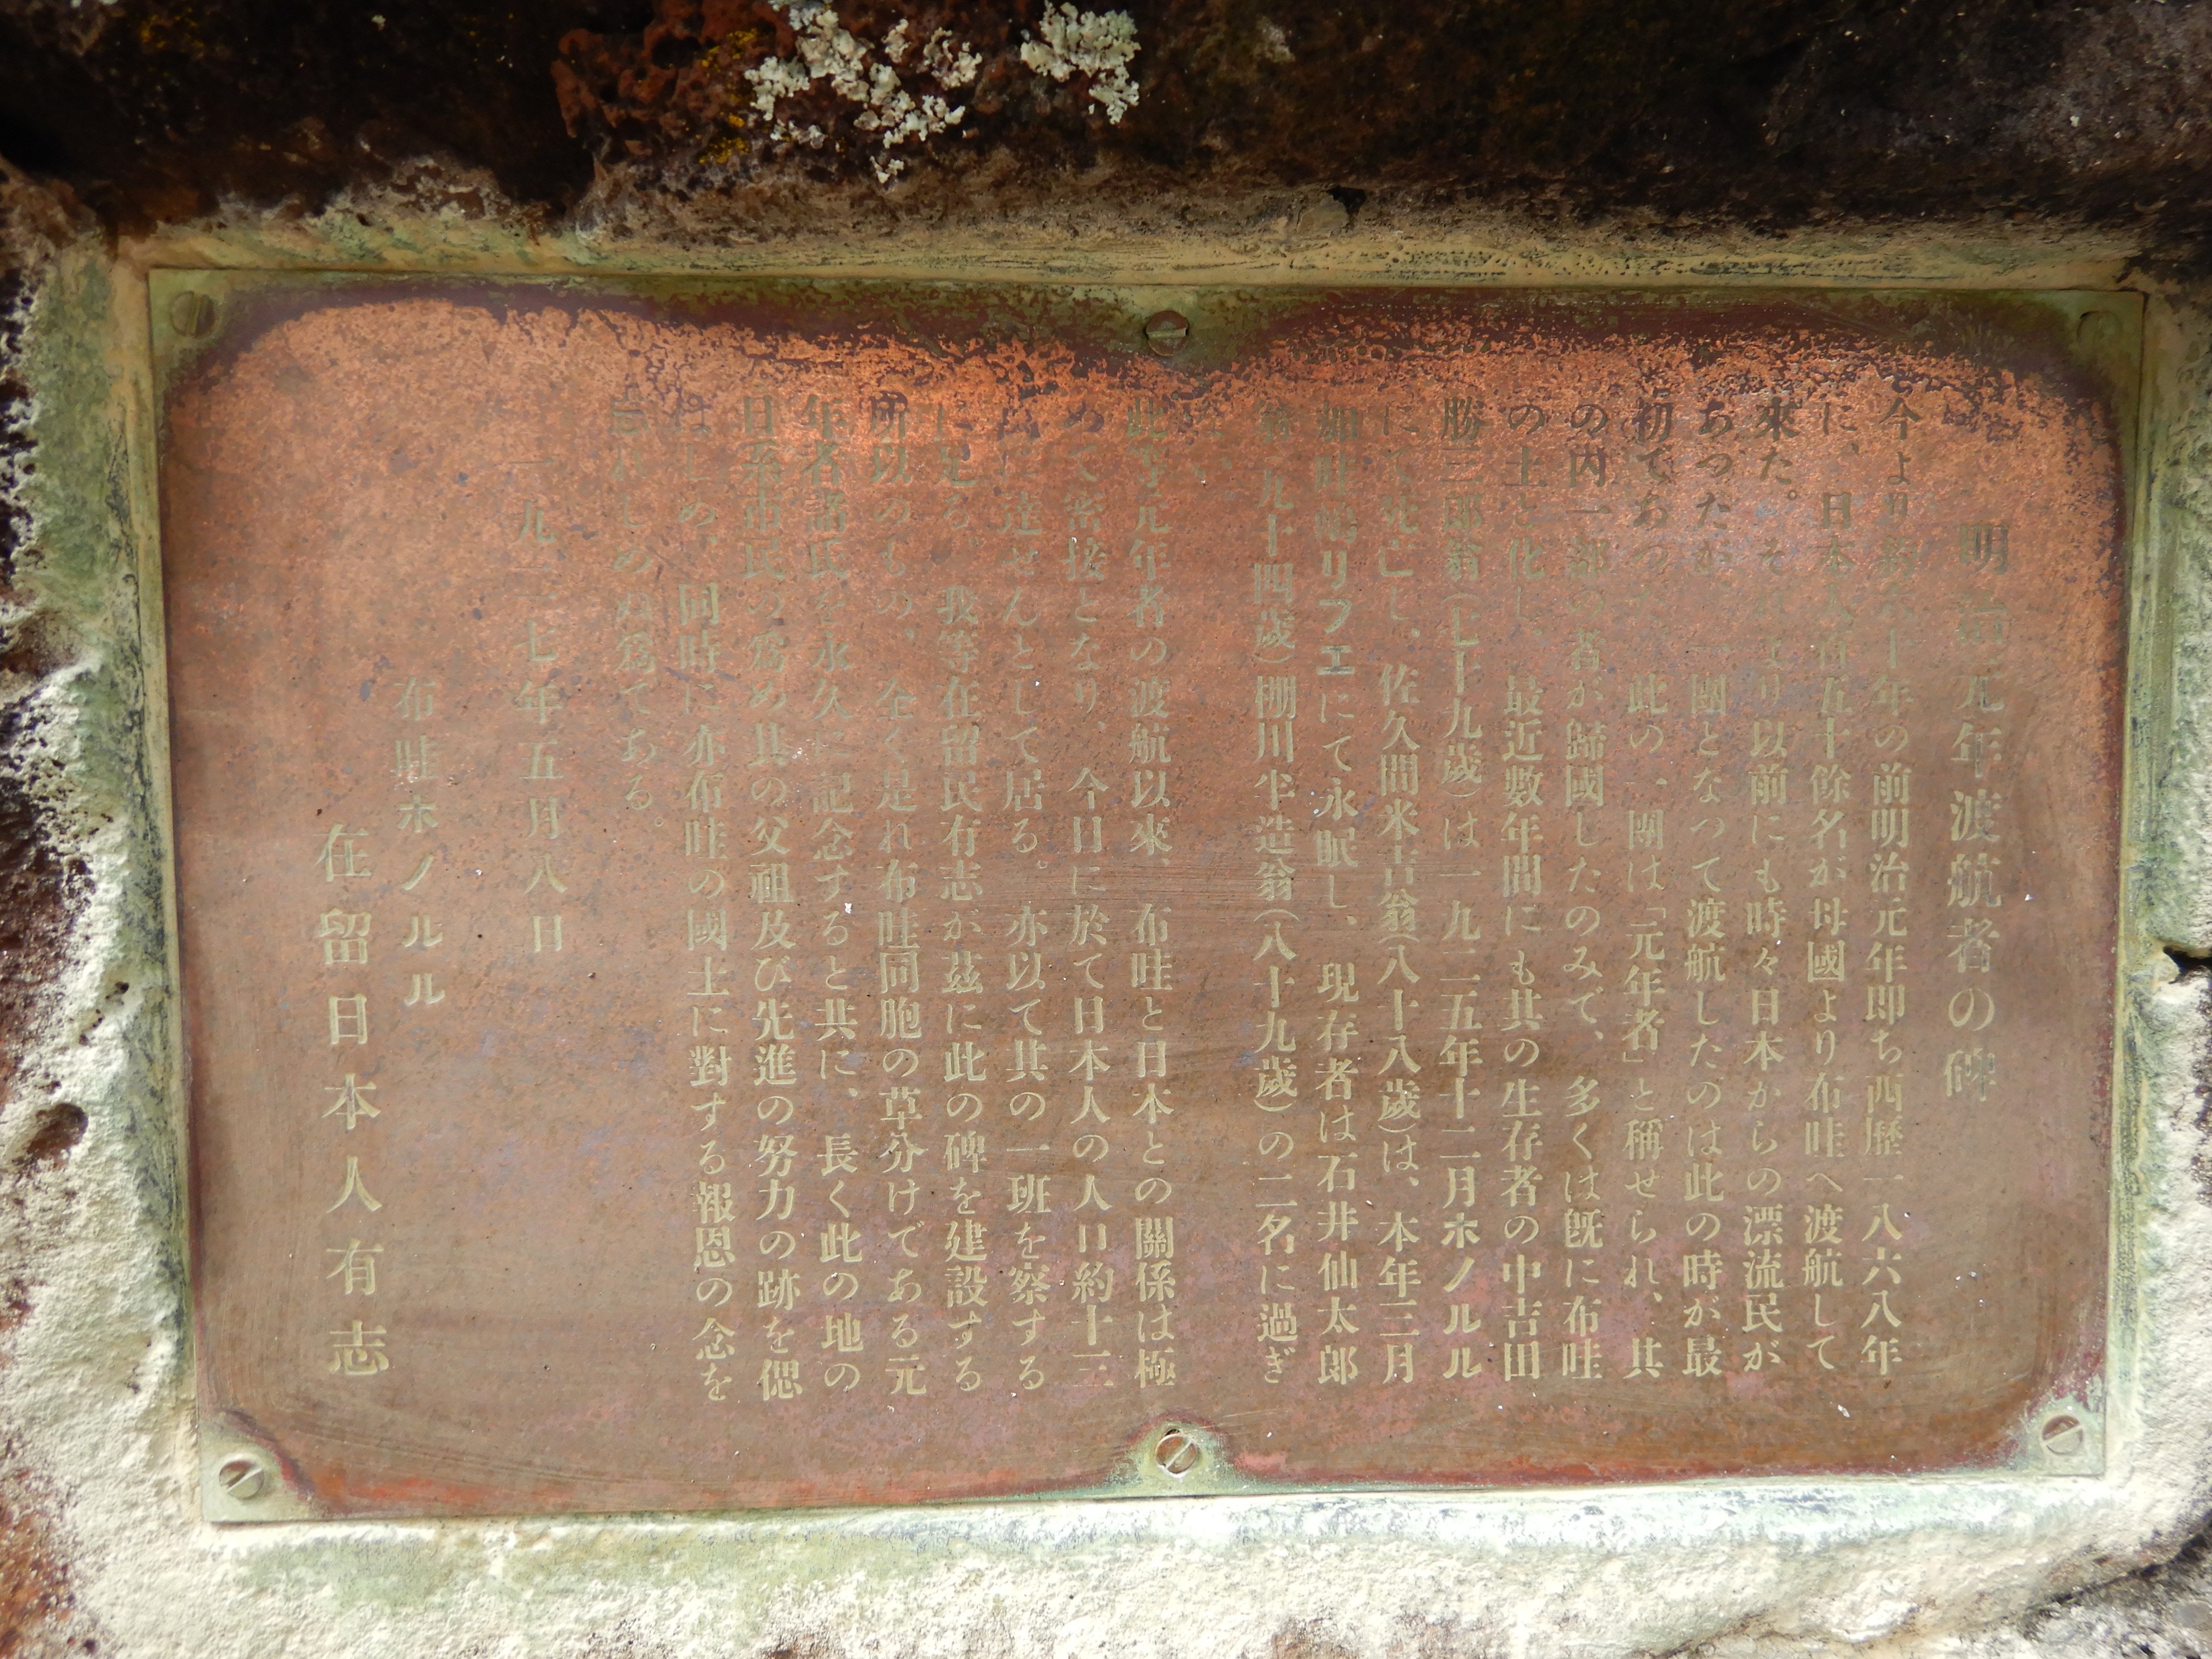 明治元年渡航者の碑
今より約六十年の前明治元年即ち西曆一八六八年
に、日本人百五十餘名が母國より布哇へ渡航して
來た。それより以前にも時々日本からの漂流民が
あつたが、一團となつて渡航したのは此の時が最
初であつた。此の一團は「元年者」と稱せられ、其
の内一部の者が歸國したのみで、多くは旣に布哇
の土と化し、最近數年間にも其の生存者の中吉田
勝三郎翁(七十九歲)は一九二五年十二月ホノルル
にて死亡し、佐久間米吉翁(八十八歲)は、本年三月
加哇嶋リフエにて永眠し、現存者は石井仙太郎
翁(九十四歲)棚川半造翁(八十九歲)の二名に過ぎ
ない。
此等元年者の渡航以來、布哇と日本との關係は極
めて密接となり、今日に於て日本人の人口約十三
萬に達せんとして居る。亦以て其の一班を察する
に足る。我等在留民有志が茲に此の碑を建設する
所以のもの、全く是れ布哇同胞の草分けである元
年者諸氏を永久に記念すると共に、長く此の地の
日系市民の爲め其の父祖及び先進の努力の跡を偲
ばしめ、同時に亦布哇の國土に對する報恩の念を
忘れしめぬ爲である。
一九二七年五月八日
布哇ホノルル
在留日本人有志